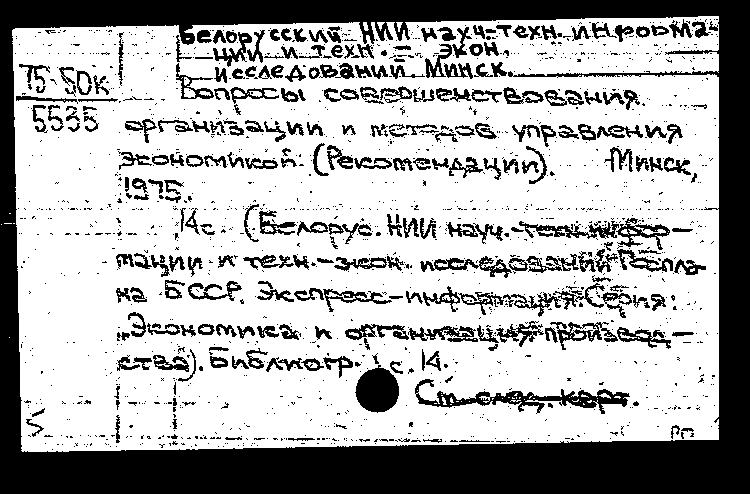 Белорусский НИИ науч-техн. информа-
ции и техн.= экон.
исследований. Минск.
75-50к
5535
Вопросы совершенствования
организации и методов управления
экономикой. (Рекомендации). Минск,
1975.
14с. (Белорус. НИИ науч.-техн. инфор-
мации и техн.-экон. исследований Госпла-
на БССР. Экспресс-информация. Серия:
„Экономика и организация производ-
ства). Библиогр. с. 14.
См. след. карт.
РП